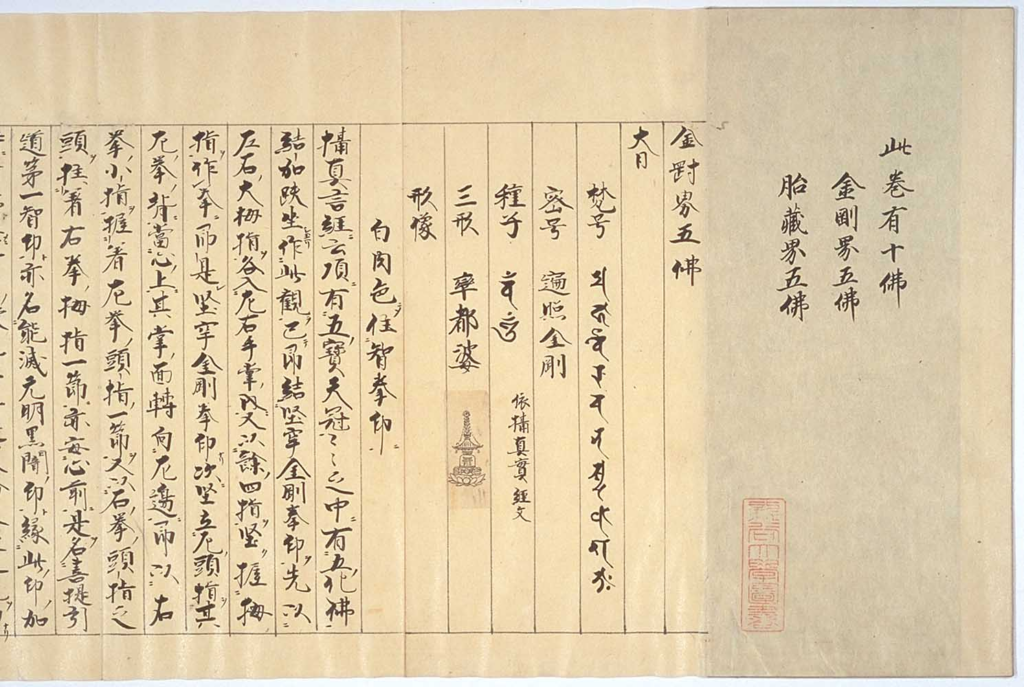 此卷有十佛
金剛界五佛
胎藏界五佛
金剛界五佛
大日
梵号
密号 遍照金剛
種子
依攝真實經文
三形 率都婆
形像
白肉色住智拳印
攝真言經云頂有五寳天冠〻〻之中有五化佛
結加趺坐作此觀已即結堅牢金剛拳印先以
左右大拇指各入左右手掌内又以餘四指堅握拇
指作拳即是堅牢金剛拳印次竪立左頭指其
左拳背當心上其掌面轉向左邊即以右
拳小指握着左拳頭指一節又以右拳頭指之
頭拄着右拳拇指一節亦安心前是名菩提引
道第一智印亦名能滅无明黒闇印縁此印加